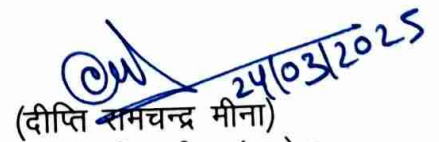 24/03/2025
(दीप्ति रामचन्द्र मीना)